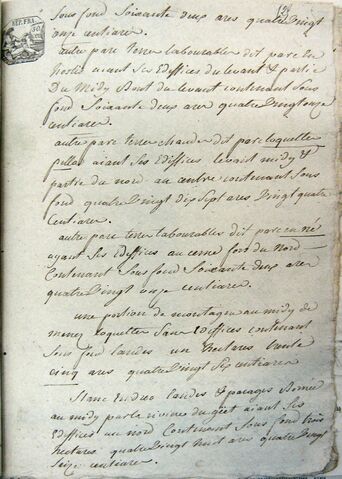 13
REP. FRA.
sous fond Soixante deux ares quatre Vingt
onze centiares.
autre parc terre Labourables dit parc en
ayant Ses Edifices du levant & partie
Du Midy dont du levant contenant Sous
fond Soixante deux ares quatre Vingt onze
centiares.
autre parc terre chaude dit parc loquellec
pellas aiant Ses Edifices levant midy &
partie du nord au cerne contenant Sous
fond quatre Vingt dix Sept ares Vingt quatre
Centiares.
autre parc terre labourables dit parc en né
ayant Ses Edifices au cerne fors du Nord
Contenant Sous fond Soixante deux ares
quatre Vingt onze centiares.
une portion de montagne au midy de
loquellec Sans Edifices contenant
Sous fond landes un hectares trente
cinq ares quatre Vingt Six centiares
Stanc landes & parages Bornée
au midy par la riviere du aiant Ses
Edifices au nord Contenant Sous fond trois
hectares quatre Vingt huit ares quatre Vingt
Seize centiares.